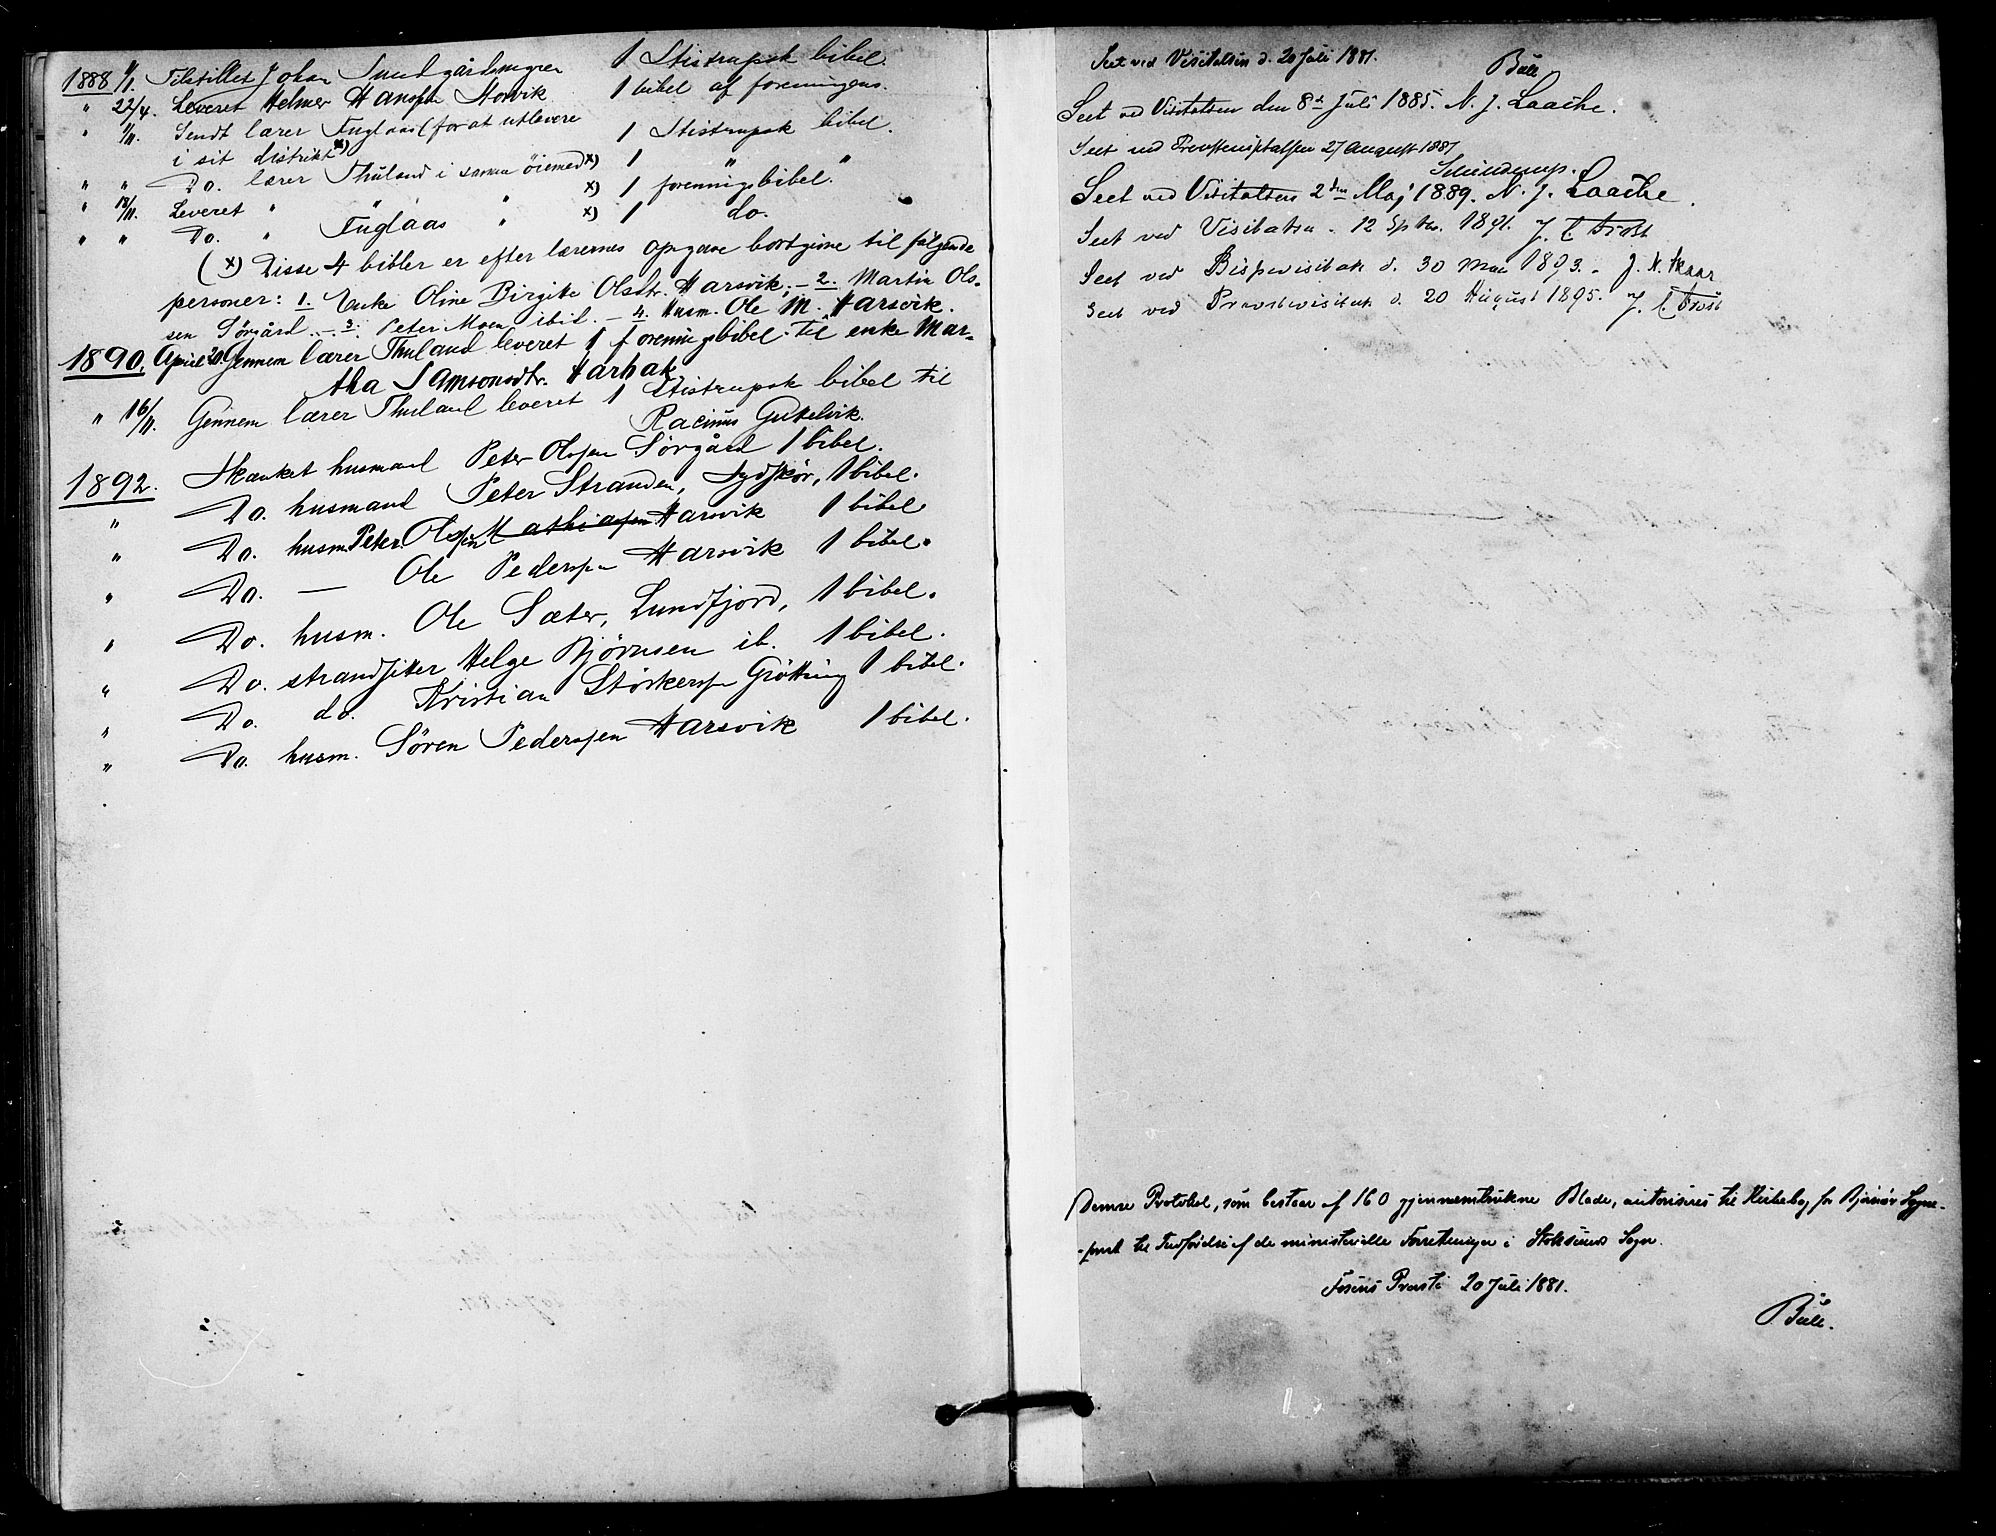 1888 1/1. Tilstillet Johan Sund gårdsmgren 1 Stistrupsk bibel.
" 22/4. Leveret Helmer Hanssen Storvik 1 bibel af foreningens.
" 1/11. Sendt lærer Fuglaas (for at utlevere
i sit distrikt x) 1 Stistrupsk bibel.
" " Do. lærer Thuland i samme öiemed x) 1 " "
" 18/11. Leveret " " " x) 1 foreningsbibel.
" " Do. " Fuglaas " x) 1 do.
(x) Disse 4 bibler er efter lærernes opgave bortgivne til følgende
personer: 1. Enke Oline Birgite Olsdtr. Harsvik, - 2. Martin Ols-
sen Sørgård. - 3. Peter Moen ibid. - 4. Husm. Ole M. Harsvik.
1890, April 20. Gjennem lærer Thuland leveret 1 foreningsbibel til enke Mar-
tha Samsonsdtr. Harbak
" 16/11. Gjennem lærer Thuland leveret 1 Stistrupsk bibel til
Racinus Gutelvik.
1892. Skænket husmand Peter Olssen Sørgård 1 bibel.
" Do. husmand Peter Stranden, Sydskør, 1 bibel.
" Do. husm. Peter Olssen Mathiassen Harsvik 1 bibel
" Do. — Ole Pederssen Harsvik 1 bibel.
" Do. husm. Ole Sæter, Lundfjord, 1 bibel.
" Do. strandsitter Helge Bjørnsen ib. 1 bibel.
" Do. do. Kristian Störkerssen Grötting 1 bibel.
" Do. husm. Søren Pederssen Harsvik 1 bibel.
Seet ved Visitatsen d. 20 Juli 1881. Bull
Seet ved Visitatsen den 8de Juli 1885. N. J. Laache.
Seet ved Provstevisitatsen 27 August 1887
Seet ved Visitatsen 2den Maj 1889. N. J. Laache.
Seet ved Visitatsen 12 Septbr. 1891. J. C. Frost
Seet ved Bispevisitats d. 30 Mai 1893. J. N. Skaar
Seet ved Provstevisitats d. 20 August 1895. J. C. Frost
Denne Protokol, som bestaar af 160 gjennemtrukne Blade, autoriseres til Kirkebog for Bjørnør Sogne-
-præst til Indførelse af de ministerielle Forretninger i Stoksunds Sogn.
Fosens Provsti 20 Juli 1881.
Bull.